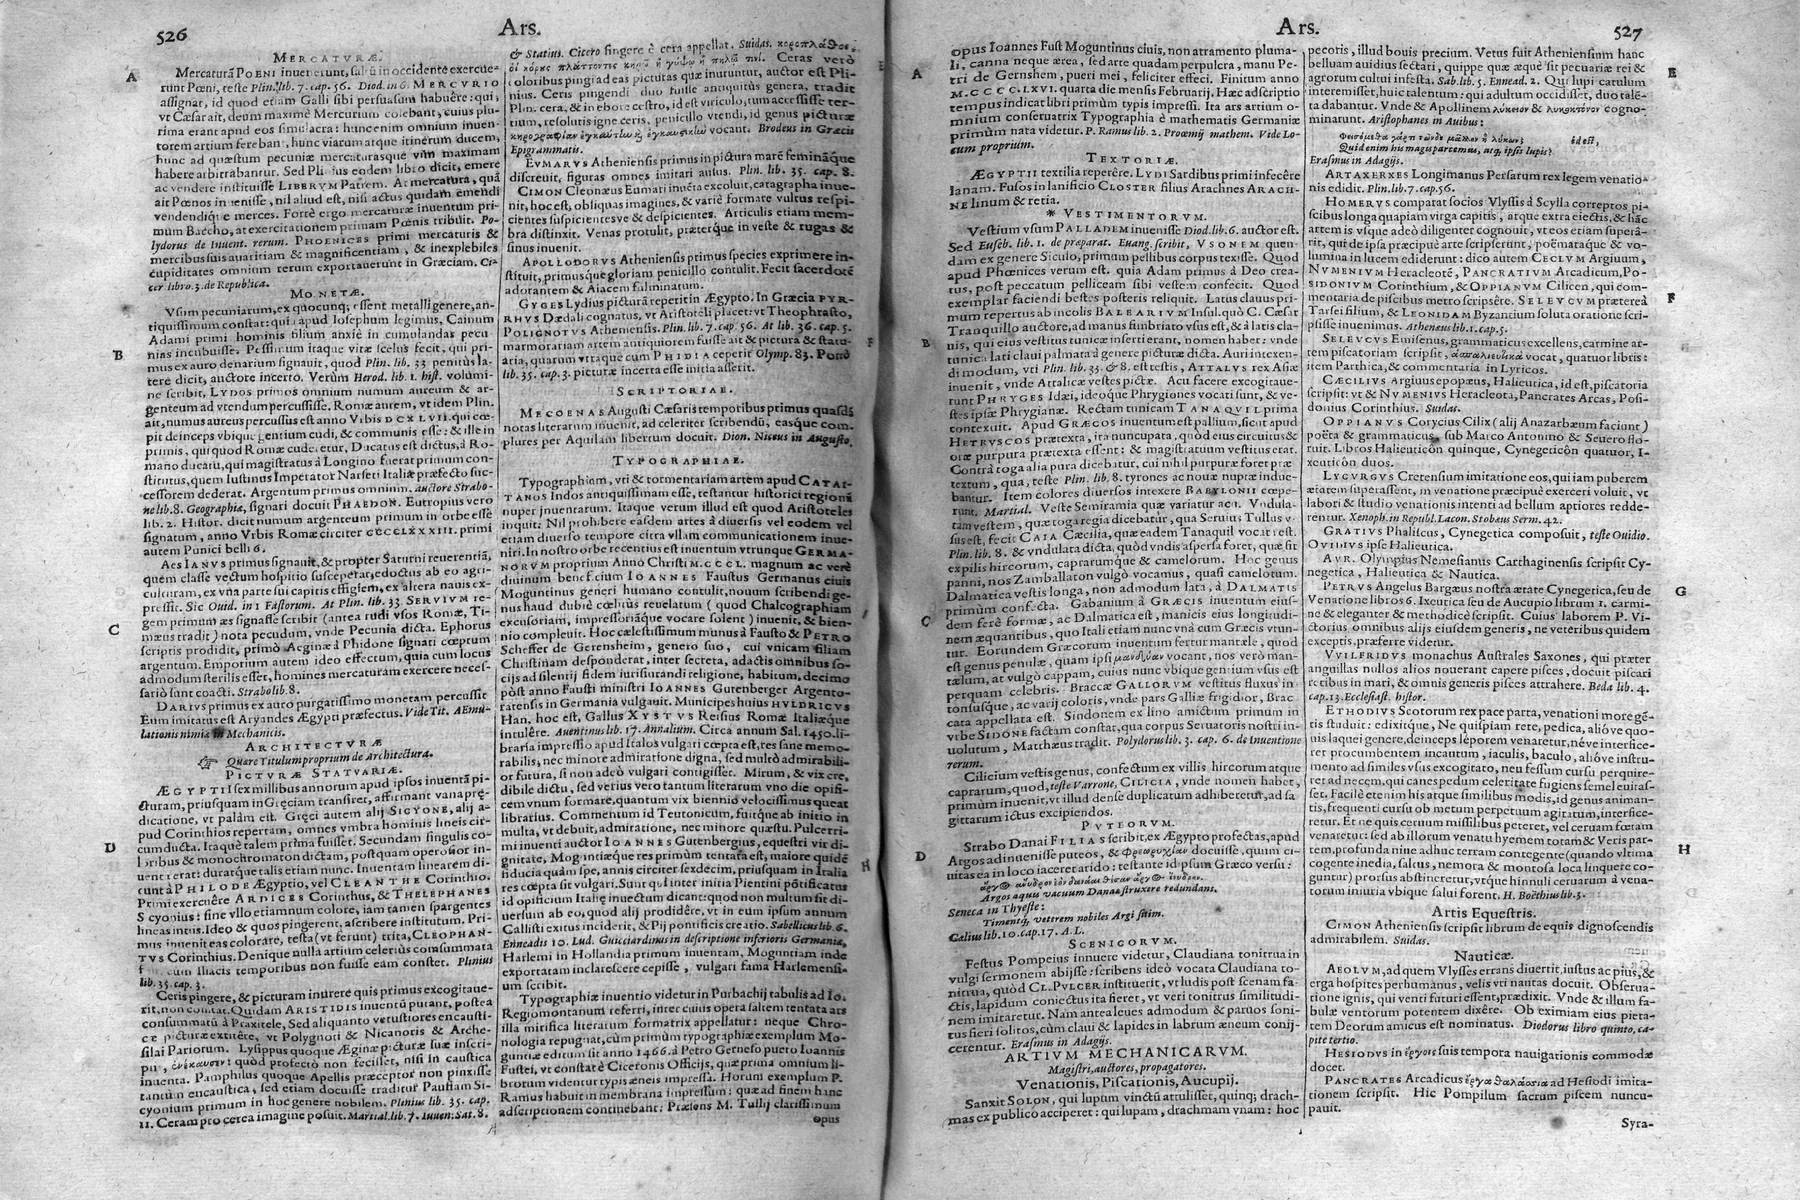 526
Ars.
MERCATVRÆ.
Mercaturā POENI inuenerunt, sal ū in occidente exercue-
runt Pœni, teste Plin. lib. 7. cap. 56. Diod. in 6. MERCVRIO
assignat, id quod etiam Galli sibi persuasum habuêre: qui,
vt Cæsar ait, deum maximè Mercurium colebant, cuius plu-
rima erant apud eos simulacra: hunc enim omnium inuen-
torem artium ferebant, hunc viarum atque itinerum ducem,
hunc ad quæstum pecuniæ mercaturasque vim maximam
habere arbitrabantur. Sed Plinius eodem libro dicit, emere
ac vendere instituisse LIBERVM Patrem. At mercatura, quā
ait Pœnos inuenisse, nil aliud est, nisi actus quidam emendi
vendendique merces. Fortè ergo mercaturæ inuentum pri-
mùm Baccho, at exercitationem primam Pœnis tribuit. Po-
lydorus de Inuent. rerum. PHOENICES primi mercaturis &
mercibus suis auaritiam & magnificentiam, & inexplebiles
cupiditates omnium rerum exportauerunt in Græciam. Ci-
cer libro. 3. de Republica.
MONETÆ.
Vsum pecuniarum, ex quocunque essent metalli genere, an-
tiquissimum constat: qui apud Iosephum legimus, Cainum
Adami primi hominis filium anxiè in cumulandas pecu-
nias incubuisse. Pessimum itaque vitæ scelus fecit, qui pri-
mus ex auro denarium signauit, quod Plin. lib. 33 penitùs la-
tere dicit, auctore incerto. Verùm Herod. lib. 1. hist. volumi-
ne scribit, LYDOS primos omnium numum aureum & ar-
genteum ad vtendum percussisse. Romæ autem, vt idem Plin.
ait, numus aureus percussus est anno Vrbis DCXLVII. qui cœ-
pit deinceps vbique gentium cudi, & communis esse: & ille in
primis, qui quod Romæ cuderetur, Ducatus est dictus, à Ro-
mano ducatu, qui magistratus à Longino fuerat primùm con-
stitutus, quem Iustinus Imperator Narseti Italiæ præfecto suc-
cessorem dederat. Argentum primus omnium, auctore Strabo-
ne lib. 8. Geographiæ, signari docuit PHAEDON. Eutropius vero
lib. 2. Histor. dicit numum argenteum primum in orbe esse
signatum, anno Vrbis Romæ circiter CCCCLXXXIII. primi
autem Punici belli 6.
Aes IANVS primus signauit, & propter Saturni reuerentiā,
quem classe vectum hospitio susceperat, edoctus ab eo agri-
culturam, ex vna parte sui capitis effigiem, ex altera nauis ex-
pressit. Sic Ouid. in 1 Fastorum. At Plin. lib. 33. SERVIVM re-
gem primum æs signasse scribit (antea rudi vsos Romæ, Ti-
mæus tradit) nota pecudum, vnde Pecunia dicta. Ephorus
scriptis prodidit, primò Aeginæ à Phidone signari cœptum
argentum. Emporium autem ideo effectum, quia cum locus
admodum sterilis esset, homines mercaturam exercere neces-
sariò sunt coacti. Strabo lib. 8.
DARIVS primus ex auro purgatissimo monetam percussit
Eum imitatus est Aryandes Ægypti præfectus. Vide Tit. AEmu-
lationis nimiæ in Mechanicis.
ARCHITECTVRÆ
☞ Quære Titulum proprium de Architectura.
PICTVRÆ STATVARIÆ.
ÆGYPTII sex millibus annorum apud ipsos inuentā pi-
cturam, priusquam in Græciam transiret, affirmant vana præ-
dicatione, vt palàm est. Græci autem alij SICYONE, alij a-
pud Corinthios repertam, omnes vmbra hominis lineis cir-
cumducta. Itaque talem prima fuisse. Secundam singulis co-
loribus & monochromaton dictam, postquam operosior in-
uenta erat: duratque talis etiam nunc. Inuentam linearem di-
cunt à PHILODE Ægyptio, vel CLEANTHE Corinthio.
Primi exercuêre ARDICES Corinthus, & THELEPHANES
Sicyonius: sine vllo etiamnum colore, iam tamen spargentes
lineas intus. Ideo & quos pingerent, ascribere institutum. Pri-
mus inuenit eas colorare, testa (vt ferunt) trita, CLEOPHAN-
TVS Corinthius. Denique nulla artium celeriùs consummata
cum Iliacis temporibus non fuisse eam constet. Plinius
lib. 35. cap. 3.
Ceris pingere, & picturam inurere quis primus excogitaue-
rit, non constat. Quidam ARISTIDIS inuentū putant, postea
consummatū à Praxitele, Sed aliquanto vetustiores encausti-
cæ picturæ extitêre, vt Polygnoti & Nicanoris & Arche-
silai Pariorum. Lysippus quoque Æginæ picturæ suæ inscri-
psit, ἐνέκαυσεν: quòd profectò non fecisset, nisi in caustica
inuenta. Pamphilus quoque Apellis præceptor non pinxisse
tantùm encaustica, sed etiam docuisse traditur Pausiam Si-
cyonium primum in hoc genere nobilem. Plinius lib. 35. cap.
11. Ceram pro cerea imagine posuit. Martial. lib. 7. Iuuen. Sat. 8.
& Statius. Cicero fingere è cera appellat. Suidas. κοροπλάθοι,
οἱ κόρας πλάττοντες κηρῷ ἢ γύψῳ ἢ πηλῷ τινι. Ceras verò
coloribus pingi ad eas picturas quæ inuruntur, auctor est Pli-
nius. Ceris pingendi duo fuisse antiquitùs genera, tradit
Plin. cera, & in ebore cestro, id est viriculo, tum accessisse ter-
tium, resolutis igne ceris, penicillo vtendi, id genus picturæ
κηρογραφίαν ἐγκαυτικὴν & ἐγκαυστικὴν vocant. Brodeus in Græcis
Epigrammatis.
EVMARVS Atheniensis primus in pictura marē femināque
discreuit, figuras omnes imitari ausus. Plin. lib. 35. cap. 8.
CIMON Cleonæus Eumari inuēta excoluit, catagrapha inue-
nit, hoc est, obliquas imagines, & variè formare vultus respi-
cientes suspicientesve & despicientes. Articulis etiam mem-
bra distinxit. Venas protulit, præterque in veste & rugas &
sinus inuenit.
APOLLODORVS Atheniensis primus species exprimere in-
stituit, primusque gloriam penicillo contulit. Fecit sacerdotē
adorantem & Aiacem fulminatum.
GYGES Lydius picturā reperit in Ægypto. In Græcia PYR-
RHVS Dædali cognatus, vt Aristoteli placet: vt Theophrasto,
POLIGNOTVS Atheniensis. Plin. lib. 7. cap. 56. At lib. 36. cap. 5.
marmorariam artem antiquiorem fuisse ait & pictura & statu-
aria, quarum vtraque cum PHIDIA ceperit Olymp. 83. Porrò
lib. 35. cap. 3. picturæ incerta esse initia asserit.
SCRIPTORIAE.
MECOENAS Augusti Cæsaris temporibus primus quasdā
notas literarum inuenit, ad celeriter scribendū, easque com-
plures per Aquilam libertum docuit. Dion. Niceus in Augusto.
TYPOGRAPHIAE.
Typographiam, vti & tormentariam artem apud CATAI-
TANOS Indos antiquissimam esse, testantur historici regionū
nuper inuentarum. Itaque verum illud est quod Aristoteles
inquit: Nil prohibere easdem artes à diuersis vel eodem vel
etiam diuerso tempore citra vllam communicationem inue-
niri. In nostro orbe recentius est inuentum vtrunque GERMA-
NORVM proprium Anno Christi M.CCCL. magnum ac verè
diuinum beneficium IOANNES Faustus Germanus ciuis
Moguntinus generi humano contulit, nouum scribendi ge-
nus haud dubiè cœlitùs reuelatum (quod Chalcographiam
excusoriam, impressoriānque vocare solent) inuenit, & bien-
nio compleuit. Hoc cælestissimum munus à Fausto & PETRO
Scheffer de Gerensheim, genero suo, cui vnicam filiam
Christinam desponderat, inter secreta, adactis omnibus so-
cijs ad silentij fidem iurisiurandi religione, habitum, decimo
pòst anno Fausti ministri IOANNES Gutenberger Argento-
ratensis in Germania vulgauit. Municipes huius HVLDRICVS
Han, hoc est, Gallus XYSTVS Reisius Romæ Italiæque
intulêre. Auentinus lib. 17. Annalium. Circa annum Sal. 1450. li-
braria impressio apud Italos vulgari cœpta est, res sane memo-
rabilis, nec minore admiratione digna, sed multò admirabili-
or futura, si non adeò vulgari contigisset. Mirum, & vix cre-
dibile dictu, sed verius vero tantum literarum vno die opifi-
cem vnum formare, quantum vix biennio velocissimus queat
librarius. Commentum id Teutonicum, fuitque ab initio in
multa, vt debuit, admiratione, nec minore quæstu. Pulcerri-
mi inuenti auctor IOANNES Gutenbergius, equestri vir di-
gnitate, Moguntiæque res primùm tentata est, maiore quidē
fiducia quàm spe, annis circiter sexdecim, priusquam in Italia
res cœpta sit vulgari. Sunt qui inter initia Pientini pōtificatus
id opificium Italię inuectum dicant: quod non multum sit di-
uersum ab eo, quod alij prodidêre, vt in eum ipsum annum
Callisti exitus inciderit, & Pij pontificis creatio. Sabellicus lib. 6.
Enneadis 10. Lud. Guicciardinus in descriptione inferioris Germaniæ,
Harlemi in Hollandia primum inuentam, Moguntiam inde
exportatam inclarescere cepisse, vulgari fama Harlemensi-
um scribit.
Typographiæ inuentio videtur in Purbachij tabulis ad Io.
Regiomontanum referri, inter cuius opera saltem tentata ars
illa mirifica literarum formatrix appellatur: neque Chro-
nologia repugnat, cùm primùm typographiæ exemplum Mo-
guntiæ editum sit anno 1466. à Petro Gerneso puero Ioannis
Fusteti, vt constat è Ciceronis Officijs, quæ prima omnium li-
brorum videntur typis æneis impressa. Horum exemplum P.
Ramus habuit in membrana impressum: quæ ad finem hanc
adscriptionem continebant: Præsens M. Tullij clarissimum
opus
A
B
C
D
E
F
H
Ars.
527
opus Ioannes Fust Moguntinus ciuis, non atramento pluma-
li, canna neque ærea, sed arte quadam perpulcra, manu Pe-
tri de Gernshem, pueri mei, feliciter effeci. Finitum anno
M.CCCC.LXVI. quarta die mensis Februarij. Hæc adscriptio
tempus indicat libri primùm typis impressi. Ita ars artium o-
mnium conseruatrix Typographia è mathematis Germaniæ
primùm nata videtur. P. Ramus lib. 2. Proœmij mathem. Vide Lo-
cum proprium.
TEXTORIÆ.
ÆGYPTII textilia reperêre. LYDI Sardibus primi infecêre
lanam. Fusos in lanificio CLOSTER filius Arachnes ARACH-
NE linum & retia.
* VESTIMENTORVM.
Vestium vsum PALLADEM inuenisse Diod. lib. 6. auctor est.
Sed Euseb. lib. 1. de preparat. Euang. scribit, VSONEM quen-
dam ex genere Siculo, primum pellibus corpus texisse. Quod
apud Phœnices verum est. quia Adam primus à Deo crea-
tus, post peccatum pelliceam sibi vestem confecit. Quod
exemplar faciendi vestes posteris reliquit. Latus clauus pri-
mum repertus ab incolis BALEARIVM Insul. quo C. Cæsar
Tranquillo auctore, ad manus fimbriato vsus est, & à latis cla-
uis, qui eius vestitus tunicæ inserti erant, nomen habet: vnde
tunica lati claui palmata à genere picturæ dicta. Auri intexen-
di modum, vti Plin. lib. 35. & 8. est testis, ATTALVS rex Asiæ
inuenit, vnde Attalicæ vestes pictæ. Acu facere excogitaue-
runt PHRYGES Idæi, ideoque Phrygiones vocati sunt, & ve-
stes ipsæ Phrygianæ. Rectam tunicam TANAQVIL prima
contexuit. Apud GRÆCOS inuentum est pallium, sicut apud
HETRVSCOS prætexta, ita nuncupata, quòd eius circuitus &
oræ purpura prætexta essent: & magistratuum vestitus erat.
Contrà toga alia pura dicebatur, cui nihil purpuræ foret præ
textum, qua, teste Plin. lib. 8. tyrones ac nouæ nuptæ indue-
bantur. Item colores diuersos intexere BABYLONII cœpe-
runt. Martial. Veste Semiramia quæ variatur acu. Vndula-
tam vestem, quæ toga regia dicebatur, qua Seruius Tullus v-
sus est, fecit CAIA Cæcilia, quæ eadem Tanaquil vocata est.
Plin. lib. 8. & vndulata dicta, quòd vndis aspersa foret, quæ sit
expilis hircorum, caprarumque & camelorum. Hoc genus
panni, nos Zamballaton vulgò vocamus, quasi camelotum.
Dalmatica vestis longa, non admodum lata, à DALMATIS
primùm confecta. Gabanium à GRÆCIS inuentum eius-
dem ferè formæ, ac Dalmatica est, manicis eius longitudi-
nem æquantibus, quo Itali etiam nunc vnà cum Græcis vtun-
tur. Eorundem Græcorum inuentum fertur mantele, quod
est genus penulæ, quam ipsi μανδύαν vocant, nos verò man-
tælum, at vulgò cappam, cuius nunc vbique gentium vsus est
perquam celebris. Braccæ GALLORVM vestitus fluxus in-
tonsusque, ac varij coloris, vnde pars Galliæ frigidior, Brac
cata appellata est. Sindonem ex lino amictum primùm in
vrbe SIDONE factam constat, qua corpus Seruatoris nostri in-
uolutum, Matthæus tradit. Polydorus lib. 3. cap. 6. de Inuentione
rerum.
Cilicium vestis genus, confectum ex villis hircorum atque
caprarum, quod, teste Varrone, CILICIA, vnde nomen habet,
primùm inuenit, vt illud dense duplicatum adhiberetur, ad sa
gittarum ictus excipiendos.
PVTEORVM.
Strabo Danai FILIAS scribit, ex Ægypto profectas, apud
Argos adinuenisse puteos, & φρεωρυχίαν docuisse, quum ci-
uitas ea in loco iaceret arido: testante id ipsum Græco versu:
ἄργος ἄνυδρον ἐὸν δανααὶ θέσαν ἄργος ἔνυδρον.
Argos aquis vacuum Danae struxere redundans.
Seneca in Thyeste:
Timentque veterem nobiles Argi sitim.
Cælius lib. 10. cap. 17. A. L.
SCENICORVM.
Festus Pompeius innuere videtur, Claudiana tonitrua in
vulgi sermonem abijsse: scribens ideò vocata Claudiana to-
nitrua, quòd CL. PVLCER instituerit, vt ludis post scenam fa-
ctis, lapidum coniectus ita fieret, vt veri tonitrus similitudi-
nem imitaretur. Nam antea leues admodum & paruos soni-
tus fieri solitos, cùm claui & lapides in labrum æneum conij-
cerentur. Erasmus in Adagijs.
ARTIVM MECHANICARVM.
Magistri, auctores, propagatores.
Venationis, Piscationis, Aucupij.
Sanxit SOLON, qui lupum vinctū attulisset, quinque drach-
mas ex publico acciperet: qui lupam, drachmam vnam: hoc
pecotis, illud bouis precium. Vetus fuit Atheniensium hanc
belluam auidius sectari, quippe quæ æquè sit pecuariæ rei &
agrorum cultui infesta. Sab. lib. 5. Ennead. 2. Qui lupi catulum
interemisset, huic talentum: qui adultum occidisset, duo tale-
ta dabantur. Vnde & Apollinem λύκειον & λυκοκτόνον cogno-
minarunt. Aristophanes in Auibus:
Φεισόμεσθα γάρτι τῶνδε μᾶλλον ἢ λύκων; id est,
Quid enim his magis parcemus, atque ipsis lupis?
Erasmus in Adagijs.
ARTAXERXES Longimanus Persarum rex legem venatio-
nis edidit. Plin. lib. 7. cap. 56.
HOMERVS comparat socios Vlyssis à Scylla correptos pi-
scibus longa quapiam virga capitis, atque extra eiectis, & hāc
artem is vsque adeò diligenter cognouit, vt eos etiam superā-
rit, qui de ipsa præcipuè arte scripserunt, poëmataque & vo-
lumina in lucem ediderunt: dico autem CECLVM Argiuum,
NVMENIVM Heracleotē, PANCRATIVM Arcadicum, Po-
SIDONIVM Corinthium, & OPPIANVM Cilicen, qui com-
mentaria de piscibus metro scripsêre. SELEVCVM prætereà
Tarsei filium, & LEONIDAM Byzancium soluta oratione scri-
psisse inuenimus. Athenæus lib. 1. cap. 5.
SELEVCVS Emisenus, grammaticus excellens, carmine ar-
tem piscatoriam scripsit, ἀσπαλιευτικὰ vocat, quatuor libris:
item Parthica, & commentaria in Lyricos.
CÆCILIVS Argiuus epopæus, Halieutica, id est, piscatoria
scripsit: vt & NVMENIVS Heracleota, Pancrates Arcas, Posi-
donius Corinthius. Suidas.
OPPIANVS Corycius Cilix (alij Anazarbæum faciunt)
poëta & grammaticus, sub Marco Antonino & Seuero flo-
ruit. Libros Halieuticôn quinque, Cynegeticôn quatuor, I-
xeuticôn duos.
LYCVRGVS Cretensium imitatione eos, qui iam puberem
ætatem superassent, in venatione præcipuè exerceri voluit, vt
labori & studio venationis intenti ad bellum aptiores redde-
rentur. Xenoph. in Republ. Lacon. Stobæus Serm. 42.
GRATIVS Phaliscus, Cynegetica composuit, teste Ouidio.
OVIDIVS ipse Halieutica.
AVR. Olympius Nemesianus Carthaginensis scripsit Cy-
negetica, Halieutica & Nautica.
PETRVS Angelus Bargæus nostra ætate Cynegetica, seu de
Venatione libros 6. Ixeutica seu de Aucupio librum 1. carmi-
ne & eleganter & methodicè scripsit. Cuius laborem P. Vi-
ctorius omnibus alijs eiusdem generis, ne veteribus quidem
exceptis, præferre videtur.
VVILFRIDVS monachus Australes Saxones, qui præter
anguillas nullos alios nouerant capere pisces, docuit piscari
retibus in mari, & omnis generis pisces attrahere. Beda lib. 4.
cap. 13. Ecclesiast. histor.
ETHODIVS Scotorum rex pace parta, venationi more gē-
tis studuit: edixitque, Ne quispiam rete, pedica, alióve quo-
uis laquei genere, deinceps leporem venaretur, néve interfice-
ret procumbentem incautum, iaculis, baculo, alióve instru-
mento ad similes vsus excogitato, neu fessum cursu perquire-
ret ad necem, qui canes pedum celeritate fugiens semel euirás-
set. Facilè etenim his atque similibus modis, id genus animan-
tis, frequenti cursu ob metum perpetuum agitatum, interfice-
retur. Et ne quis ceruum missilibus peteret, vel ceruam fœtam
venaretur: sed ab illorum venatu hyemem totam & Veris par-
tem, profunda niue adhuc terram contegente (quando vltima
cogente inedia, saltus, nemora & montosa loca linquere co-
guntur) prorsus abstineretur, vtque hinnuli ceruarum à vena-
torum iniuria vbique salui forent. H. Boëthius lib. 5.
Artis Equestris.
CIMON Atheniensis scripsit librum de equis dignoscendis
admirabilem. Suidas.
Nauticæ.
AEOLVM, ad quem Vlysses errans diuertit, iustus ac pius, &
erga hospites perhumanus, velis vti nautas docuit. Obserua-
tione ignis, qui venti futuri essent, prædixit. Vnde & illum fa-
bulæ ventorum potentem dixêre. Ob eximiam eius pieta-
tem Deorum amicus est nominatus. Diodorus libro quinto, ca-
pite tertio.
HESIODVS in ἔργοις suis tempora nauigationis commodæ
docet.
PANCRATES Arcadicus ἔργα θαλάσσια ad Hesiodi imita-
tionem scripsit. Hic Pompilum sacrum piscem nuncu-
pauit.
Syra-
A
B
C
D
E
F
G
H